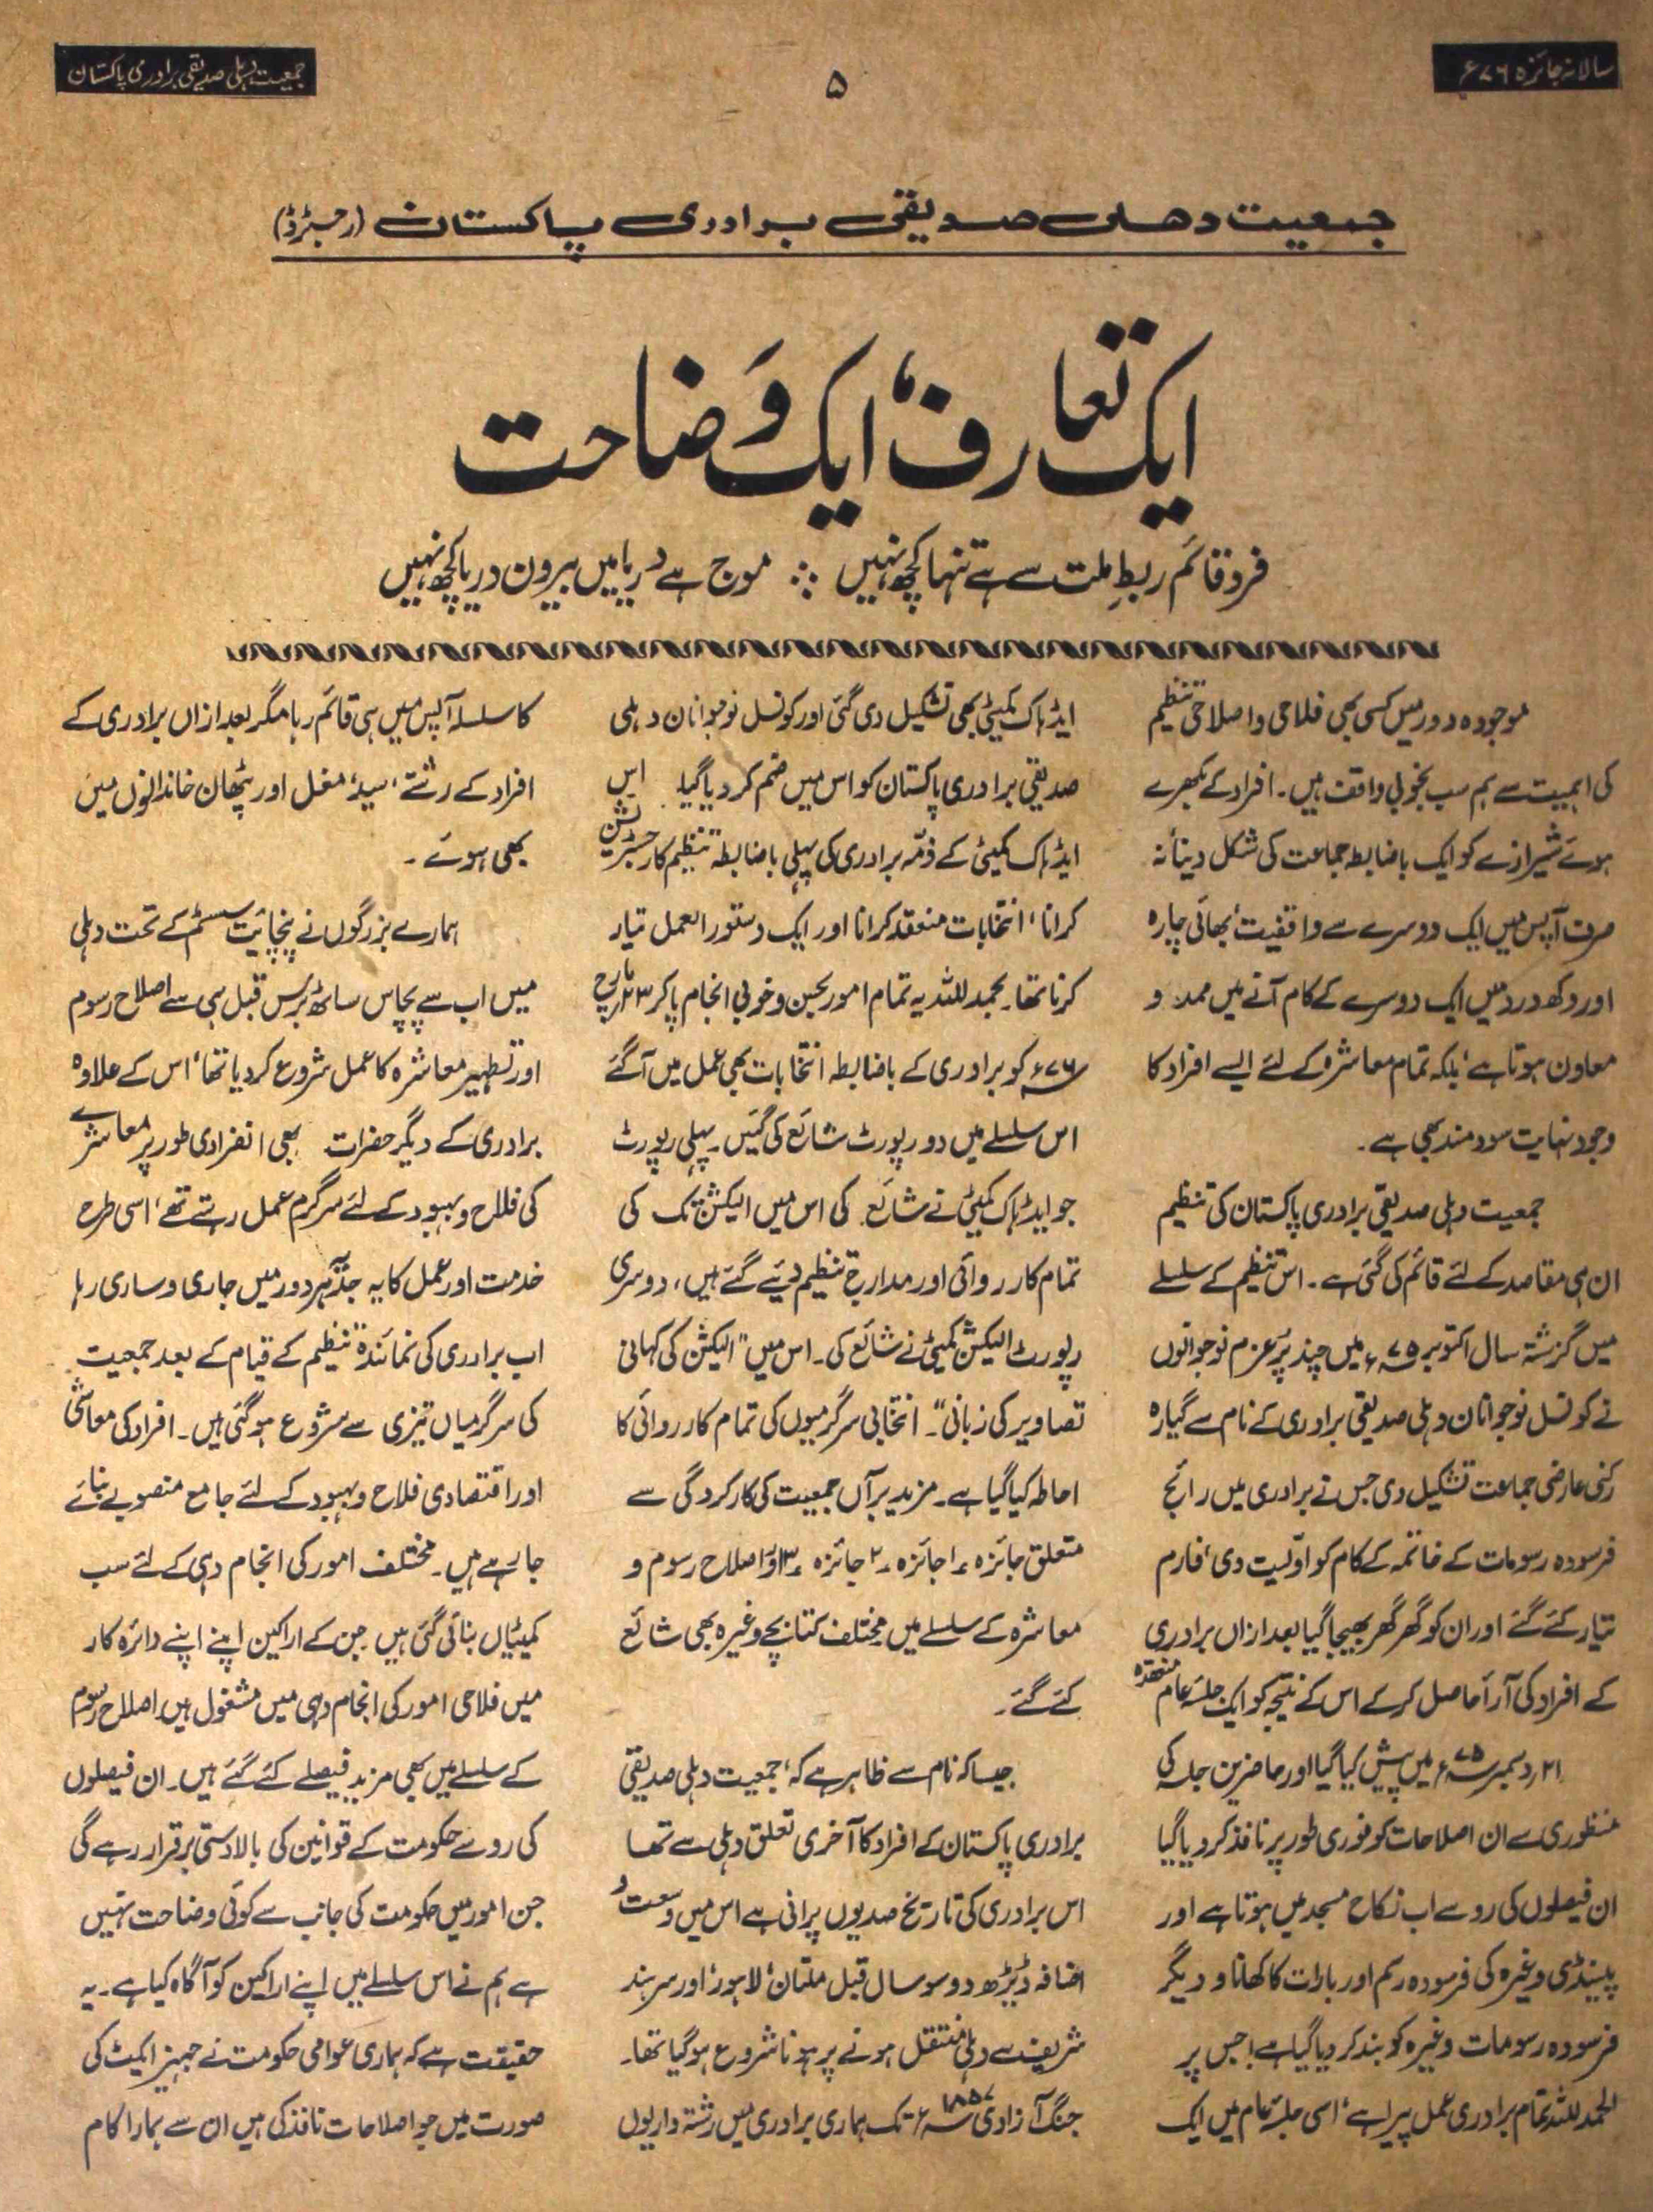 سالانہ جائزہ ۷۶ء
۵
جمعیت دہلی صدیقی برادری پاکستان
جمعیت دھلی صدیقی برادری پاکستان (رجسٹرڈ)
ایک تعارف، ایک وضاحت
فرد قائم ربطِ ملت سے ہے تنہا کچھ نہیں ؞ موج ہے دریا میں بیرون دریا کچھ نہیں
موجودہ دور میں کسی بھی فلاحی و اصلاحی تنظیم
کی اہمیت سے ہم سب بخوبی واقف ہیں۔ افراد کے بکھرے
ہوئے شیرازے کو ایک باضابطہ جماعت کی شکل دینا نہ
صرف آپس میں ایک دوسرے سے واقفیت، بھائی چارہ
اور دکھ درد میں ایک دوسرے کے کام آنے میں ممد و
معاون ہوتا ہے، بلکہ تمام معاشرہ کے لئے ایسے افراد کا
وجود نہایت سود مند بھی ہے۔
جمعیت دہلی صدیقی برادری پاکستان کی تنظیم
ان ہی مقاصد کے لئے قائم کی گئی ہے۔ اس تنظیم کے سلسلے
میں گزشتہ سال اکتوبر ۷۵ء میں چند پُرعزم نوجوانوں
نے کونسل نوجوانان دہلی صدیقی برادری کے نام سے گیارہ
رکنی عارضی جماعت تشکیل دی جس نے برادری میں رائج
فرسودہ رسومات کے خاتمہ کے کام کو اوّلیت دی، فارم
تیار کئے گئے اور ان کو گھر گھر بھیجا گیا بعد ازاں برادری
کے افراد کی آرأ حاصل کر کے اس کے نتیجہ کو ایک جلسۂ عام منعقدہ
۲۱ دسمبر ۷۵ء میں پیش کیا گیا اور حاضرین جلسہ کی
منظوری سے ان اصلاحات کو فوری طور پر نافذ کر دیا گیا
ان فیصلوں کی رو سے اب نکاح مسجد میں ہوتا ہے اور
پینڈی وغیرہ کی فرسودہ رسم اور بارات کا کھانا و دیگر
فرسودہ رسومات وغیرہ کو بند کر دیا گیا ہے، جس پر
الحمد للہ تمام برادری عمل پیرا ہے، اسی جلسۂ عام میں ایک
ایڈہاک کمیٹی بھی تشکیل دی گئی اور کونسل نوجوانان دہلی
صدیقی برادری پاکستان کو اس میں ضم کر دیا گیا۔ اس
ایڈہاک کمیٹی کے ذمّہ برادری کی پہلی باضابطہ تنظیم کا رجسٹریشن
کرانا، انتخابات منعقد کرانا اور ایک دستور العمل تیار
کرنا تھا۔ بحمد للہ یہ تمام امور بحسن و خوبی انجام پا کر ۲۳ مارچ
۷۶ء کو برادری کے باضابطہ انتخابات بھی عمل میں آ گئے
اس سلسلے میں دو رپورٹ شائع کی گئیں۔ پہلی رپورٹ
جو ایڈہاک کمیٹی نے شائع کی اس میں الیکشن تک کی
تمام کارروائی اور مدارج تنظیم دئیے گئے ہیں، دوسری
رپورٹ الیکشن کمیٹی نے شائع کی۔ اس میں "الیکشن کی کہانی
تصاویر کی زبانی"۔ انتخابی سرگرمیوں کی تمام کارروائی کا
احاطہ کیا گیا ہے۔ مزید برآں جمعیت کی کارکردگی سے
متعلق جائزہ ۱، جائزہ ۲، جائزہ ۳، اور اصلاح رسوم و
معاشرہ کے سلسلے میں مختلف کتابچے وغیرہ بھی شائع
کئے گئے۔
جیسا کہ نام سے ظاہر ہے کہ، جمعیت دہلی صدیقی
برادری پاکستان کے افراد کا آخری تعلق دہلی سے تھا
اس برادری کی تاریخ صدیوں پرانی ہے اس میں وسعت و
اضافہ ڈیڑھ دو سو سال قبل ملتان، لاہور، اور سرہند
شریف سے دہلی منتقل ہونے پر ہونا شروع ہو گیا تھا۔
جنگ آزادی ۱۸۵۷ء تک ہماری برادری میں رشتہ داریوں
کا سلسلہ آپس میں ہی قائم رہا مگر بعد ازاں برادری کے
افراد کے رشتے، سید، مغل اور پٹھان خاندانوں میں
بھی ہوئے۔
ہمارے بزرگوں نے پنچائیت سسٹم کے تحت دہلی
میں اب سے پچاس ساٹھ برس قبل ہی سے اصلاح رسوم
اور تطہیر معاشرہ کا عمل شروع کر دیا تھا، اس کے علاوہ
برادری کے دیگر حضرات بھی انفرادی طور پر معاشرے
کی فلاح و بہبود کے لئے سرگرم عمل رہتے تھے، اسی طرح
خدمت اور عمل کا یہ جذبہ ہر دور میں جاری و ساری رہا
اب برادری کی نمائندہ تنظیم کے قیام کے بعد جمعیت
کی سرگرمیاں تیزی سے شروع ہو گئی ہیں۔ افراد کی معاشی
اور اقتصادی فلاح و بہبود کے لئے جامع منصوبے بنائے
جا رہے ہیں۔ مختلف امور کی انجام دہی کے لئے سب
کمیٹیاں بنائی گئی ہیں جن کے اراکین اپنے اپنے دائرہ کار
میں فلاحی امور کی انجام دہی میں مشغول ہیں، اصلاح رسوم
کے سلسلے میں بھی مزید فیصلے کئے گئے ہیں۔ ان فیصلوں
کی رو سے حکومت کے قوانین کی بالادستی برقرار رہے گی
جن امور میں حکومت کی جانب سے کوئی وضاحت نہیں
ہے ہم نے اس سلسلے میں اپنے اراکین کو آگاہ کیا ہے۔ یہ
حقیقت ہے کہ ہماری عوامی حکومت نے جہیز ایکٹ کی
صورت میں جو اصلاحات نافذ کی ہیں ان سے ہمارا کام